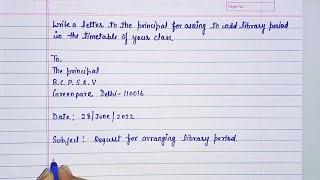 Write a letter to the principal for asking to add library period
in the timetable of your class.
To,
The principal
B.C.P.S.K.V
Greenpark, Delhi-110016
Date: 28/June/2022
Subject: Request for arranging library period.